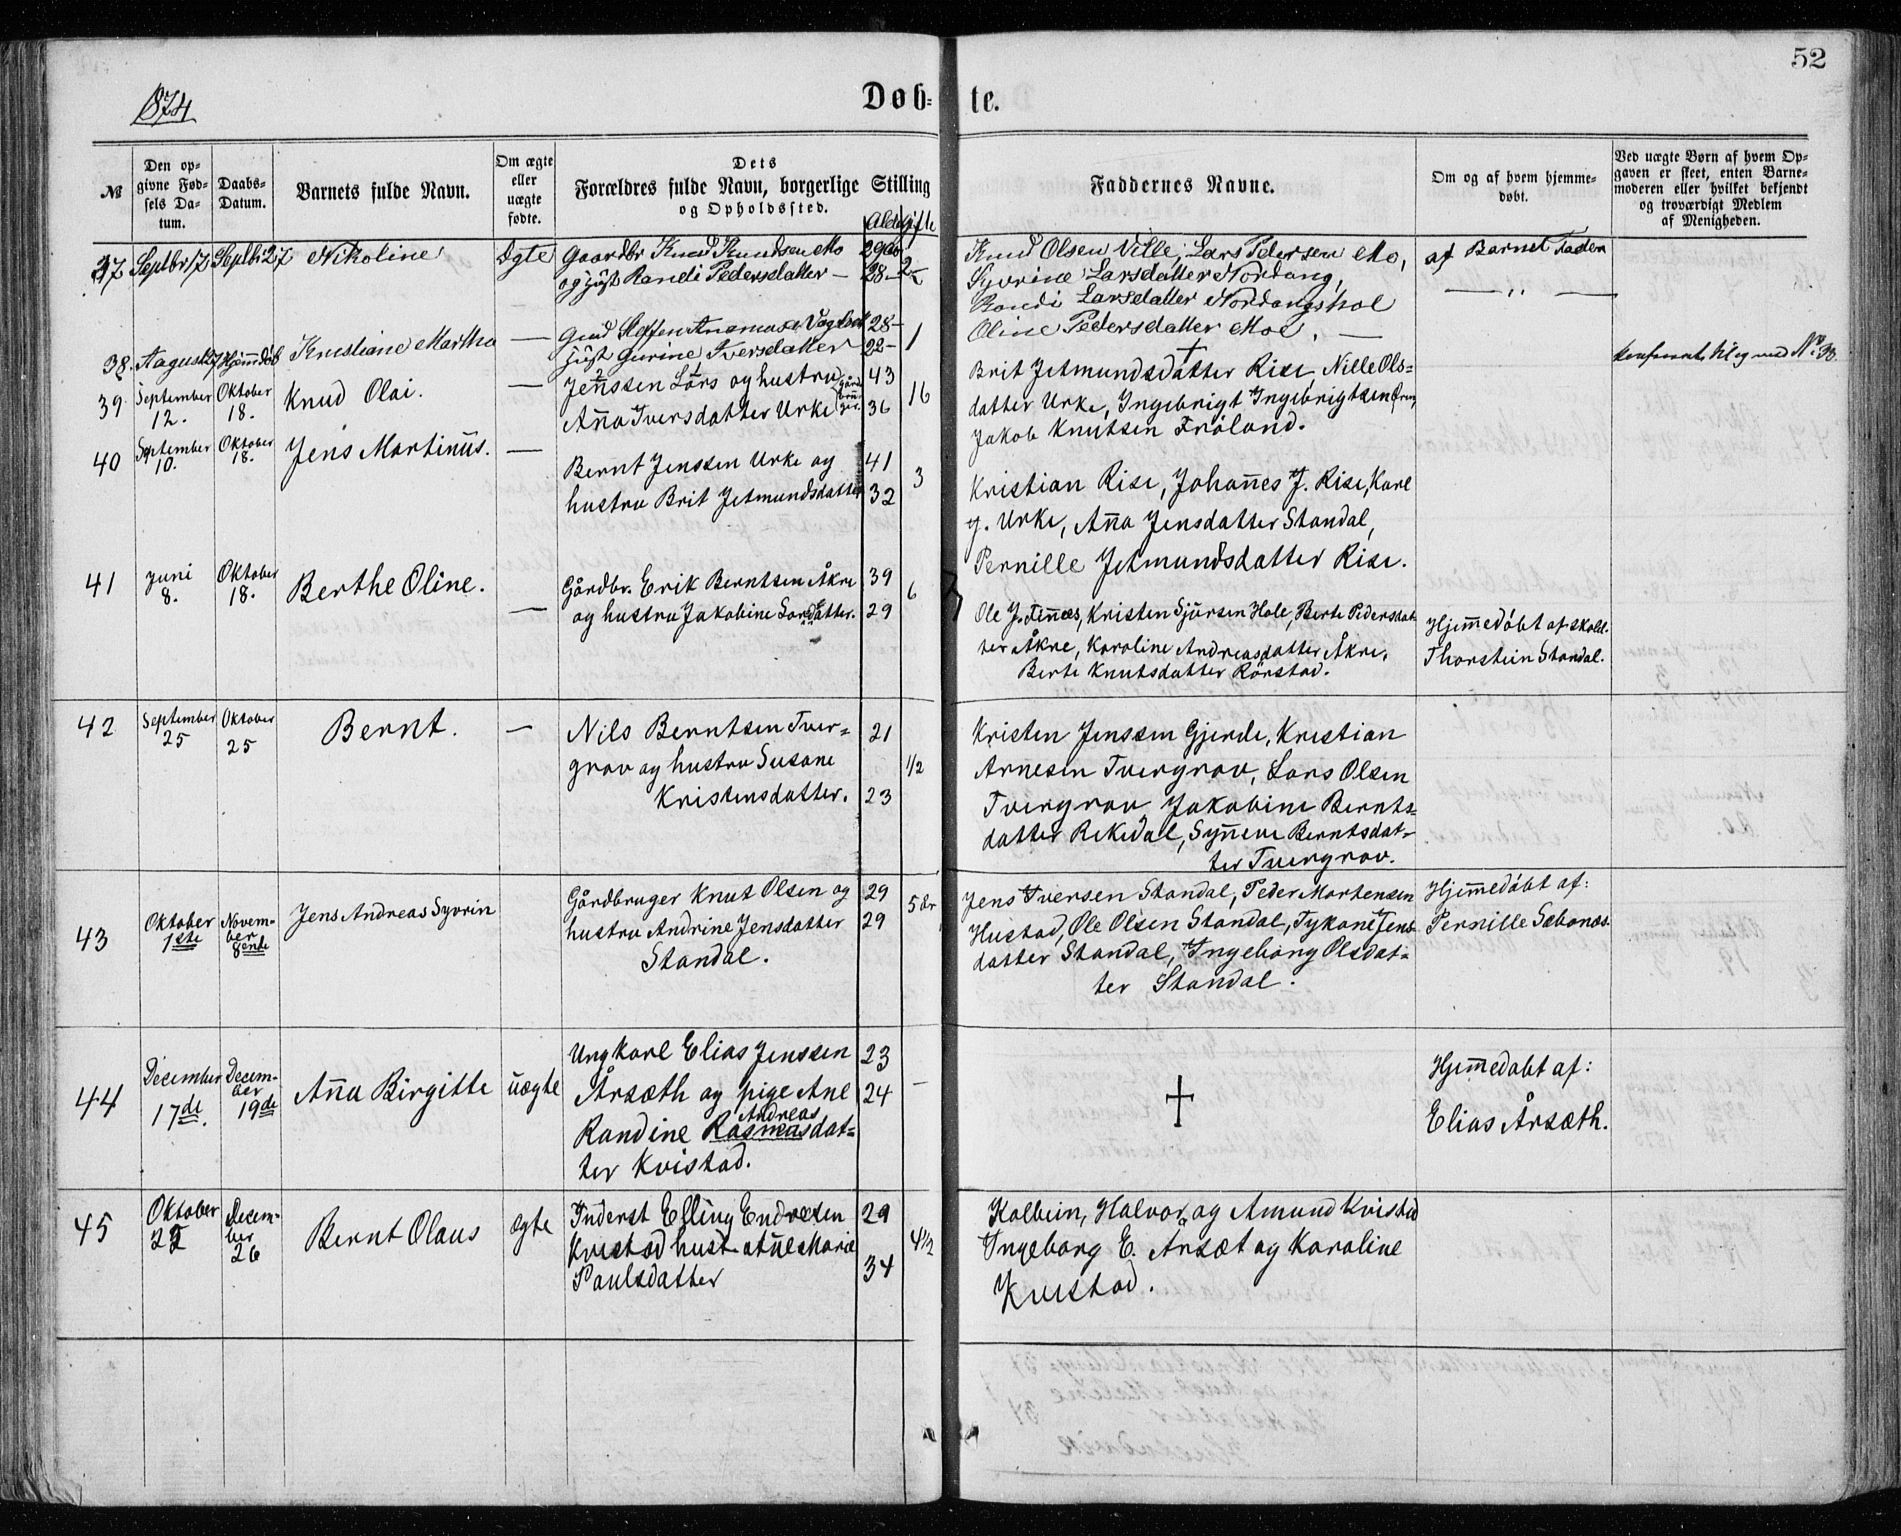 52
1874
Døb- te.
№
Den opgivne Fødsels Datum.
Daabs-Datum.
Barnets fulde Navn.
Om ægte eller uægte fødte.
Dets Forældres fulde Navn, borgerlige Stilling og Opholdssted.
Alder
gifte
Faddernes Navne.
Om og af hvem hjemmedøbt.
Ved uægte Børn af hvem Opgaven er skeet, enten Barnemoderen eller hvilket bekjendt og troværdigt Medlem af Menigheden.
37 Septbr 17 Septbr 27 Nikoline Ægte Gaardbr Knud Knudsen Mo 29
og hust Randi Pedersdatter — 28 2
Knud Olsen Ville, Lars Pedersen Mo,
Syvrine Larsdatter Nordang,
Randi Larsdatter Nordangshol
Oline Pedersdatter Moe. —
af Barnet Fader
— " —
38. August 27 Hjemdøb Kristiane Martha — Gmd Steffen 28 —
hust Gurine Iversdatter 22 — 1
†
39. September 12. Oktober 18. Knud Olai. — Jenssen Lars og hustru 43
Anna Iversdatter Urke gårdbruger. 36 16
Brit Jetmundsdatter Rise Nille Ols-
datter Urke, Ingebrigt Ingebrigtsen
Jakob Knutsen Frøland.
40 September 10. Oktober 18. Jens Martinus. — Bernt Jenssen Urke og 41
hustru Brit Jetmundsdatter 32 3
Kristian Rise, Johannes J. Rise, Karl
J. Urke, Anna Jensdatter Standal,
Pernille Jetmundsdatter Rise.
41 Juni 8. Oktober 18. Berthe Oline. — Gårdbr. Erik Berntsen Åkre 39
og hustru Jakobine Larsdatter. 29 6
Ole J. Finnes, Kristen Sjursen Hole, Berte Pedersdat-
ter Åkre, Karoline Andreasdatter Åkre,
Berte Knutsdatter Rörstad.
Hjemmedøbt af skoll.
Thorstein Standal.
42 September 25 Oktober 25 Bernt. — Nils Berntsen Tver- 21
grov og hustru Susane 1/2
Kristensdatter. 23
Kristen Jenssen Gjerde, Kristian
Arnesen Tvergrov, Lars Olsen
Tvergrov Jakobine Bernts-
datter Rekedal, Synneve Berntsdat-
ter Tvergrov.
43 Oktober 1ste November 8ende Jens Andreas Syvrin Gårdbruger Knut Olsen og 29 5 år
hustru Andrine Jensdatter 29
Standal.
Jens Iversen Standal, Peder Mortensen
Hustad, Ole Olsen Standal, Tykane Jens-
datter Standal, Ingeborg Olsdat-
ter Standal.
Hjemmedøbt af:
Pernille Sæbønes.
44 December 17de. December 19de Anna Birgitte uægte Ungkarl Elias Jenssen 23
Årsæth og pige Ane 24 —
Randine Rasmusdat-
Andreas
ter Kvistad.
†
Hjemmedøbt af:
Elias Årsæth.
45 Oktober December 26 Bernt Olaus ægte Inderst Elling Endresen 29
Kvistad hust Ane Marie 4 1/2
Paulsdatter 34
Kolbein, Halvor og Amund Kvistad
Ingeborg E. Årsæt og Karoline
Kvistad.